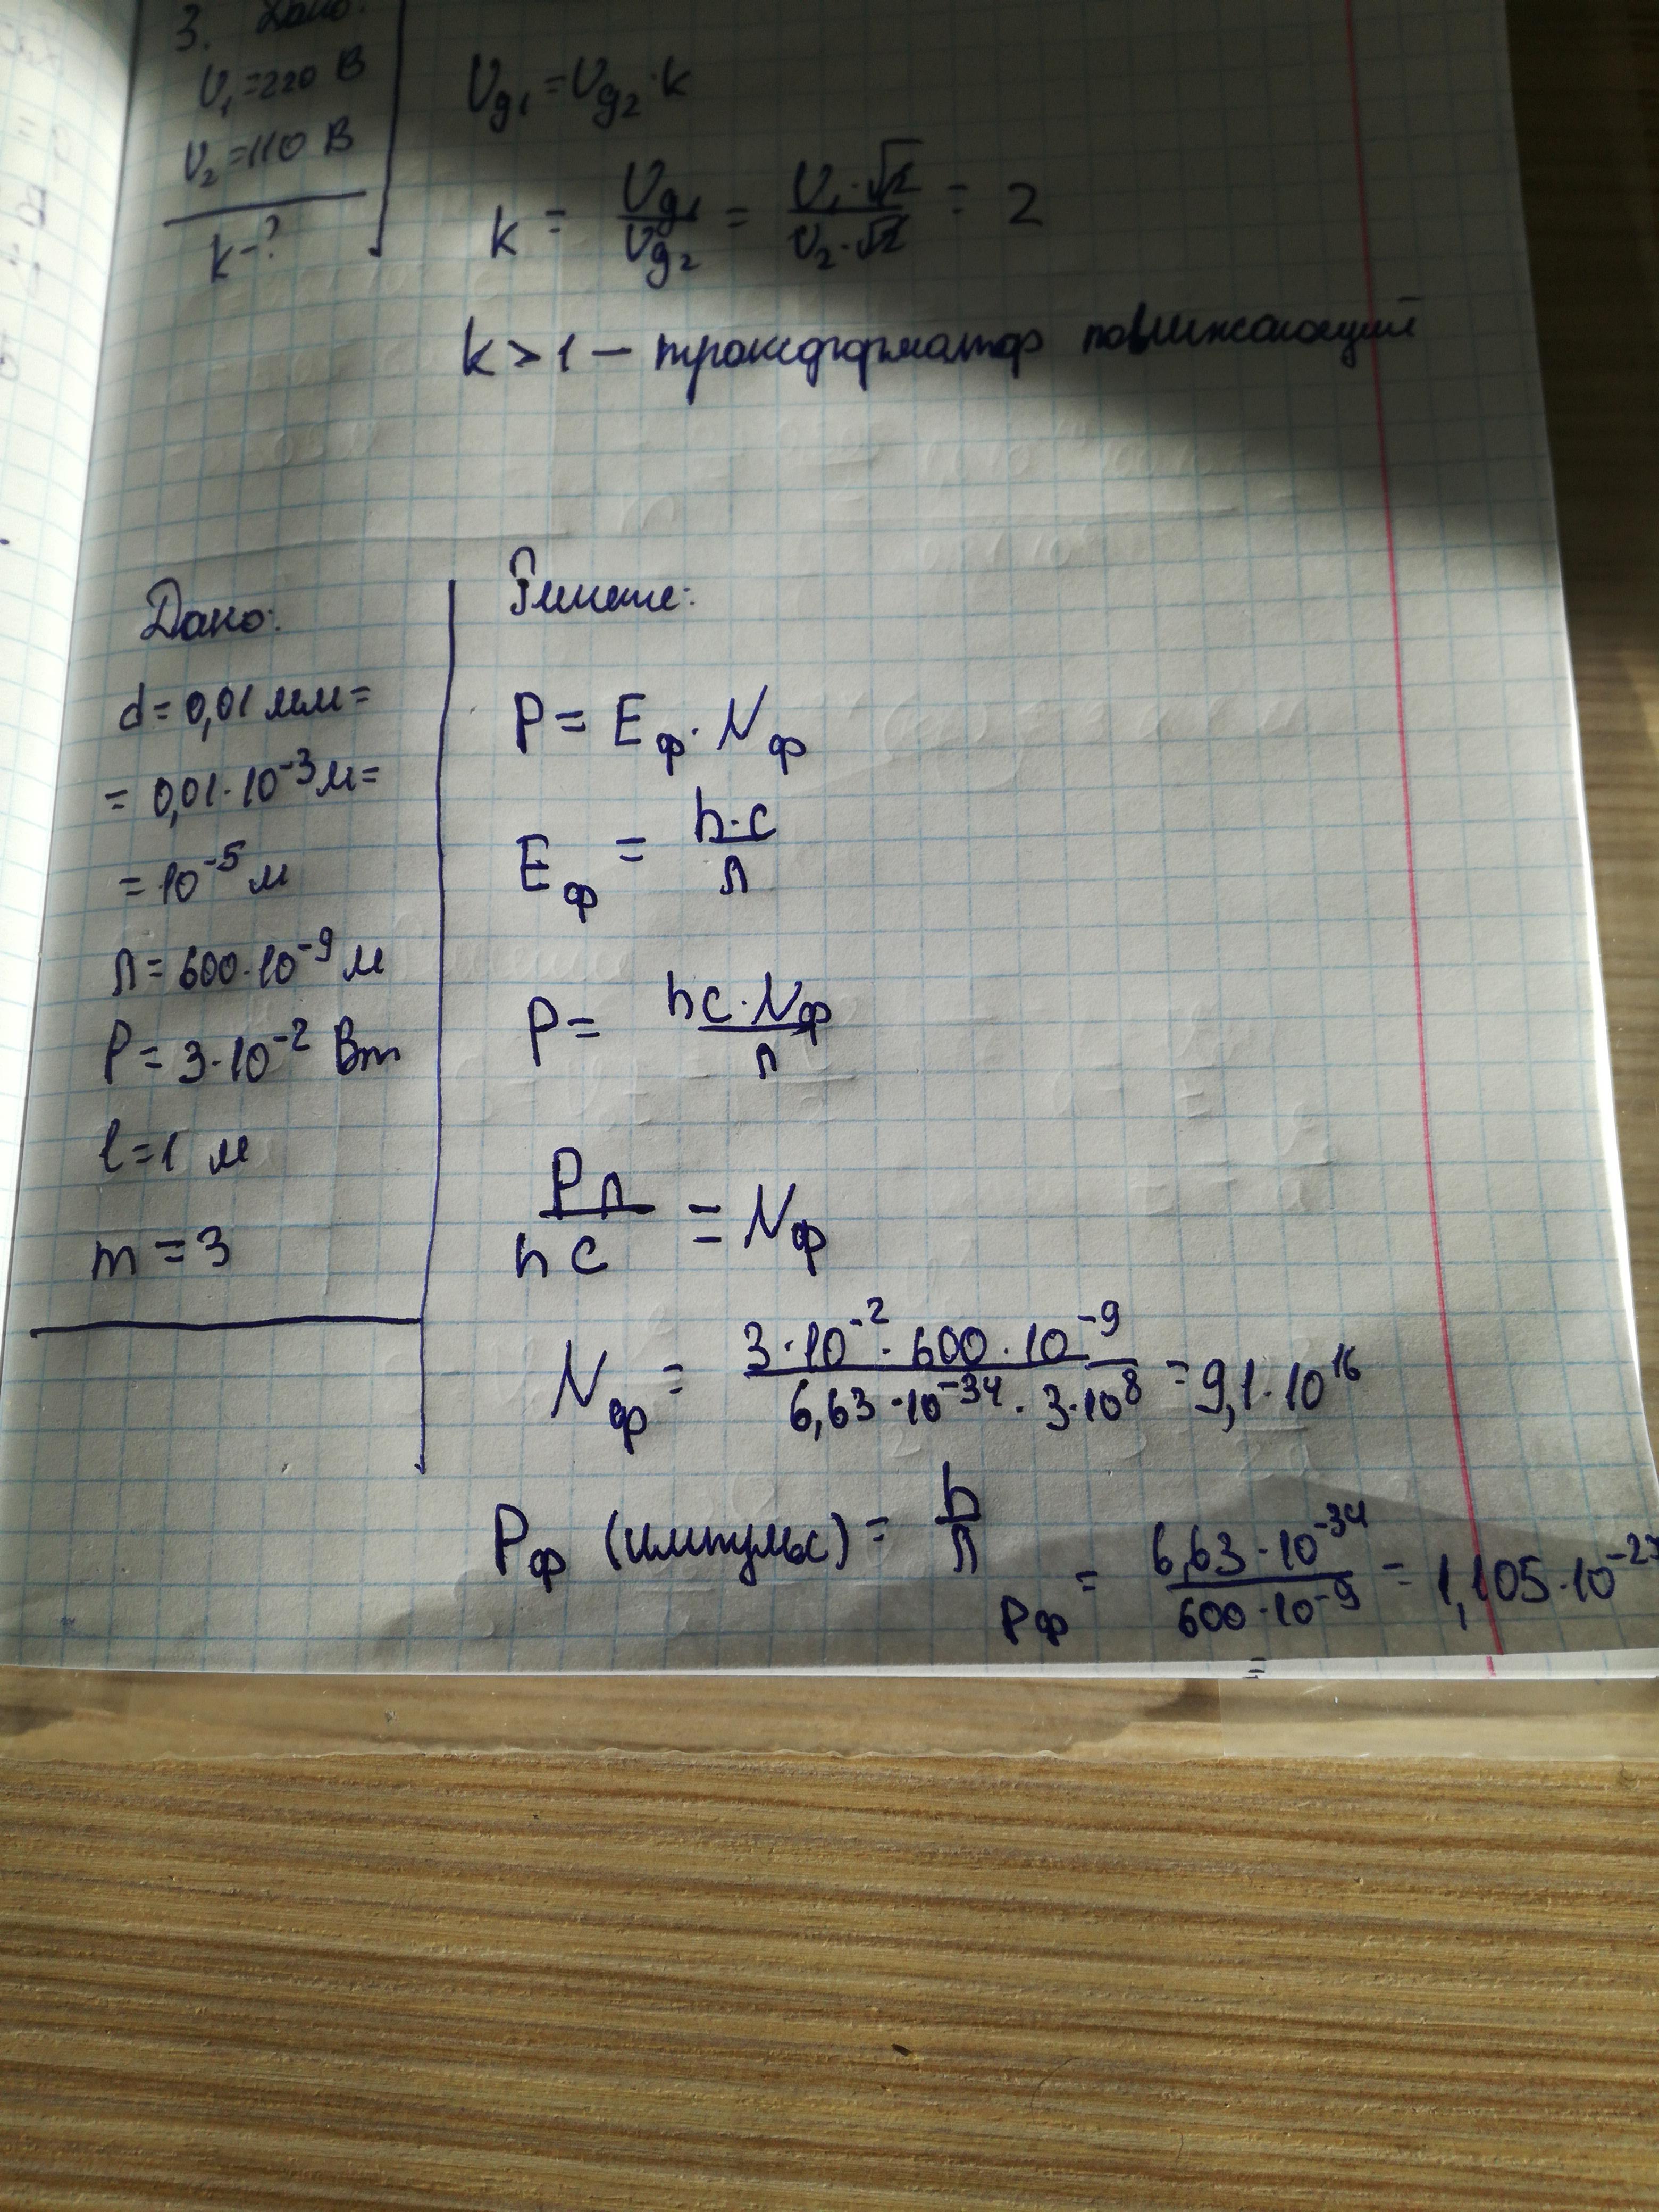 3. Дано:
U₁=220 В
U₂=110 В
k-?
Ug₁=Ug₂·k
k = Ug₁/Ug₂ = U₁·√2/U₂·√2 = 2
k>1 — трансформатор повышающий
Дано:
d=0,01 мм=
= 0,01·10⁻³м=
=10⁻⁵ м
λ=600·10⁻⁹ м
P=3·10⁻² Вт
l=1 м
m=3
Решение:
P= Eф·Nф
Eф = h·c/λ
P= hc·Nф/λ
Pλ/hc = Nф
Nф = 3·10⁻²·600·10⁻⁹/6,63·10⁻³⁴·3·10⁸ =9,1·10¹⁶
Pф (импульс)= h/λ
Pф = 6,63·10⁻³⁴/600·10⁻⁹ = 1,105·10⁻²⁷
=